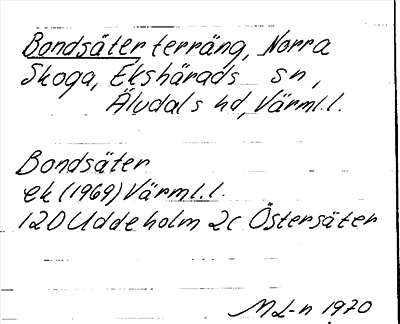 Bondsäter terräng, Norra
Skoga, Ekshärads sn,
Älvdals hd, Värml.l.
Bondsäter
ek (1969) Värml.l.
12D Uddeholm 2c Östersäter
ML-n 1970